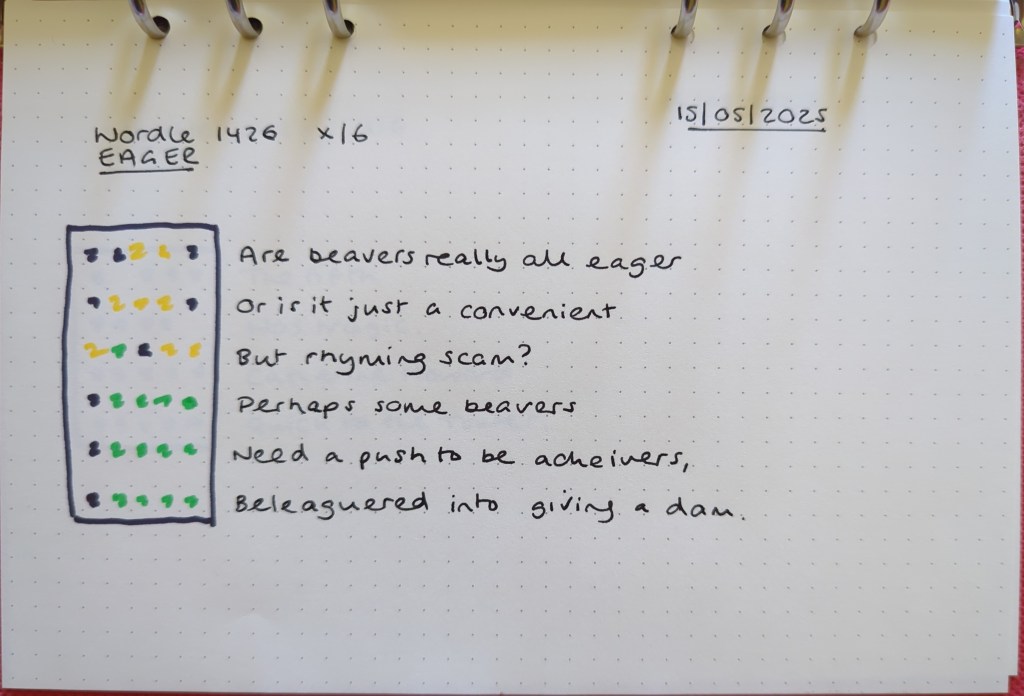 Wordle 1426 X/6
15/05/2025
EAGER
Are beavers really all eager
Or is it just a convenient
But rhyming scam?
Perhaps some beavers
Need a push to be acheivers,
Beleaguered into giving a dam.